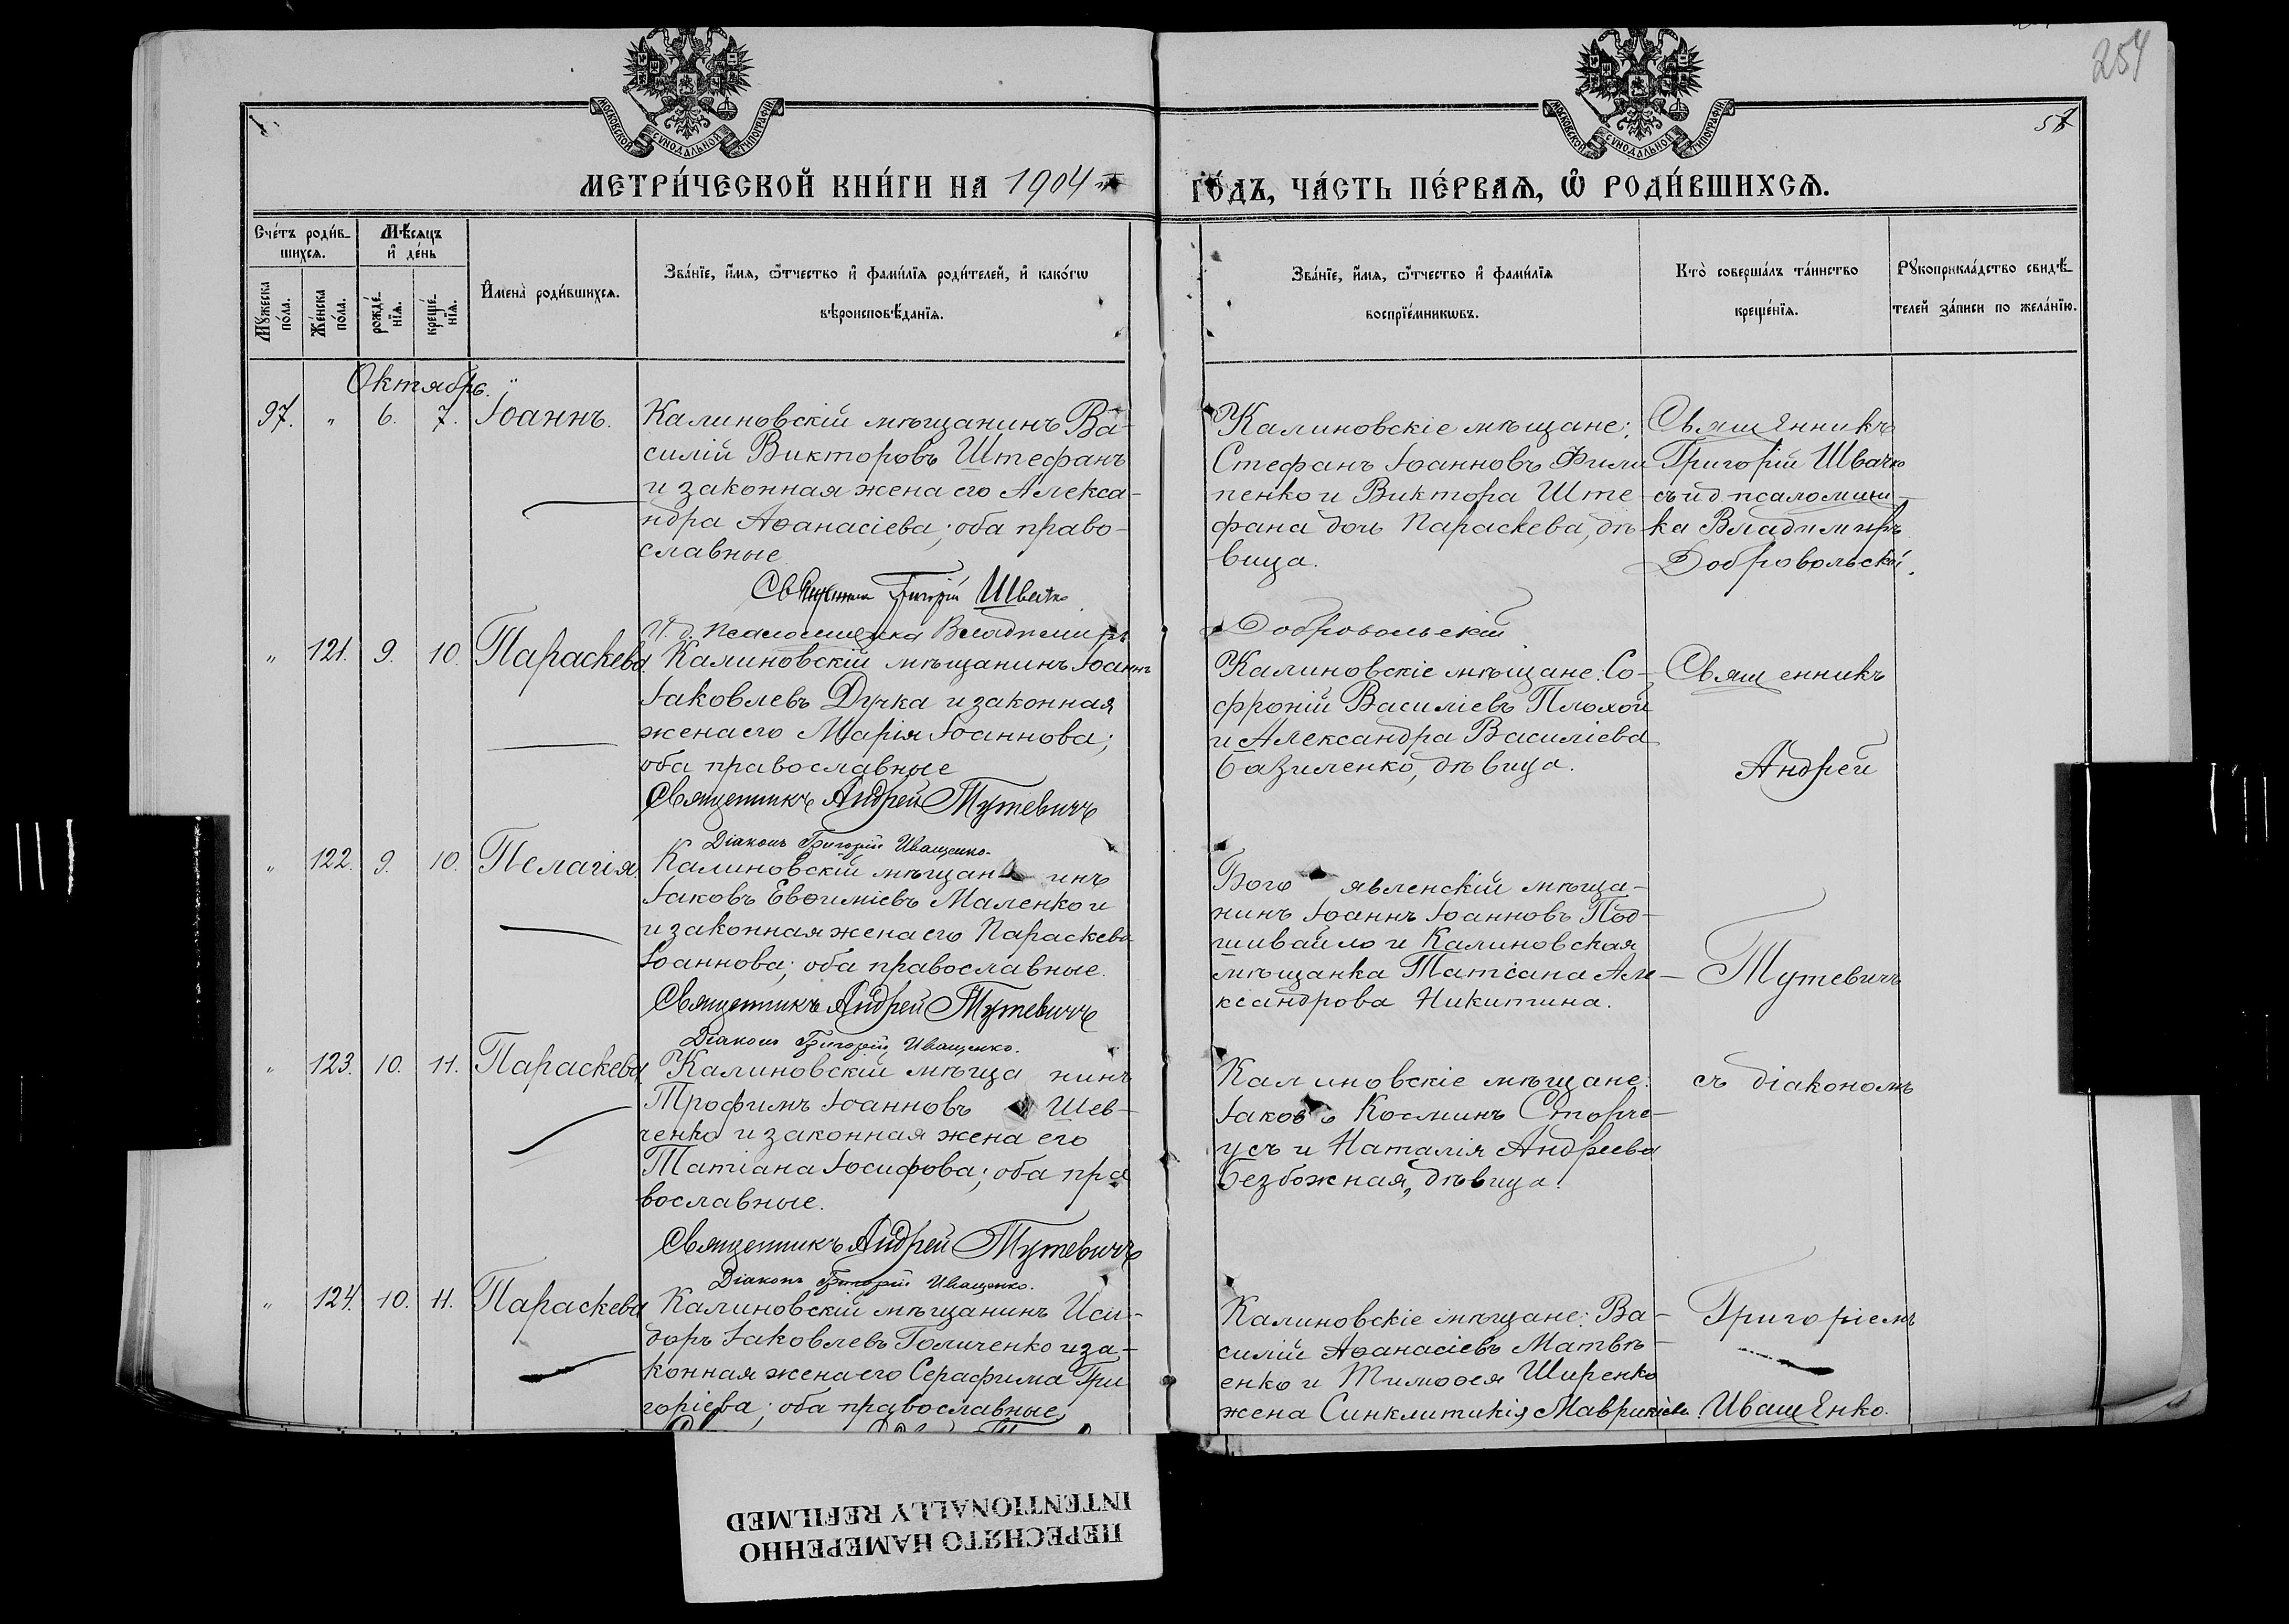 254
58
МОСКОВСКОЙ СѴНОДАЛЬНОЙ ТИПОГРАФІИ
МОСКОВСКОЙ СѴНОДАЛЬНОЙ ТИПОГРАФІИ
МЕТРИ́ЧЕСКОЙ КНИ́ГИ НА 1904 й
ГО́ДЪ, ЧА́СТЬ ПЕ́РВАѦ, Ѽ РОДИ́ВШИХСѦ.
Счётъ роди́в-
шихсѧ.
Мѣ́сѧцъ
и҆ де́нь
Мꙋ́жеска
по́ла.
Же́нска
по́ла.
рожде́-
нїѧ.
креще́-
нїѧ.
И҆мена̀ роди́вшихсѧ.
Зва́нїе, и҆́мѧ, ѻ҆́тчество и҆ фами́лїѧ роди́телей, и҆ како́гѡ
вѣроисповѣ́данїѧ.
Зва́нїе, и҆́мѧ, ѻ҆́тчество и҆ фами́лїѧ
воспрїе́мникѡвъ.
Кто̀ соверша́лъ та́инство
креще́нїѧ.
Рꙋкоприкла́дство свидѣ́-
телей за́писи по жела́нїю.
Октябрь.
97. " 6. 7. Іоаннъ.
Калиновскій мѣщанинъ Ва-
силій Викторовъ Штефанъ
и законная жена его Алекса-
ндра Аѳанасіева; оба право-
славные
Священникъ Григорій Швачко
И. д. псаломщика Владимиръ
Добровольскій
Калиновскіе мѣщане:
Стефанъ Іоанновъ Фили
пенко и Виктора Ште-
фана дочь Параскева, дѣ-
вица.
Священникъ
Григорій Швачко
съ и д псаломщи-
ка Владимиръ
Добровольскій.
" 121. 9. 10. Параскева
Калиновскій мѣщанинъ Іоаннъ
Іаковлевъ Дучка и законная
жена его Марія Іоаннова;
оба православные
Священникъ Андрей Тутевичъ
Діаконъ Григорій Иващенко.
Калиновскіе мѣщане: Со-
фроній Василіевъ Плохой
и Александра Василіева
Базиленко, дѣвица.
Священникъ
Андрей
" 122. 9. 10. Пелагія
Калиновскій мѣщан инъ
Іаковъ Евѳиміевъ Маленко и
и законная жена его Параскева
Іоаннова; оба православные.
Священникъ Андрей Тутевичъ
Діаконъ Григорій Иващенко.
Бого явленскій мѣща-
нинъ Іоаннъ Іоанновъ Под-
шивайло и Калиновская
мѣщанка Татіана Але-
ксандрова Никитина.
Тутевичъ
" 123. 10. 11. Параскева
Калиновскій мѣща нинъ
Трофимъ Іоанновъ Шев-
ченко и законная жена его
Татіана Іосифова; оба пра
вославные.
Священникъ Андрей Тутевичъ
Діаконъ Григорій Иващенко.
Калиновскіе мѣщане:
Іаковъ Косминъ Сторче-
усъ и Наталія Андреева
Безбожная, дѣвица.
съ діакономъ
" 124. 10. 11. Параскева
Калиновскій мѣщанинъ Иси-
доръ Іаковлевъ Голиченко и за-
конная жена его Серафима Гри
горіева; оба православные
Калиновскіе мѣщане: Ва-
силій Аѳанасіевъ Матвѣ-
енко и Тимоѳея Ширенко
жена Синклитикія Маврикіева.
Григоріемъ
Иващенко.
ПЕРЕСНЯТО НАМЕРЕННО
INTENTIONALLY REFILMED